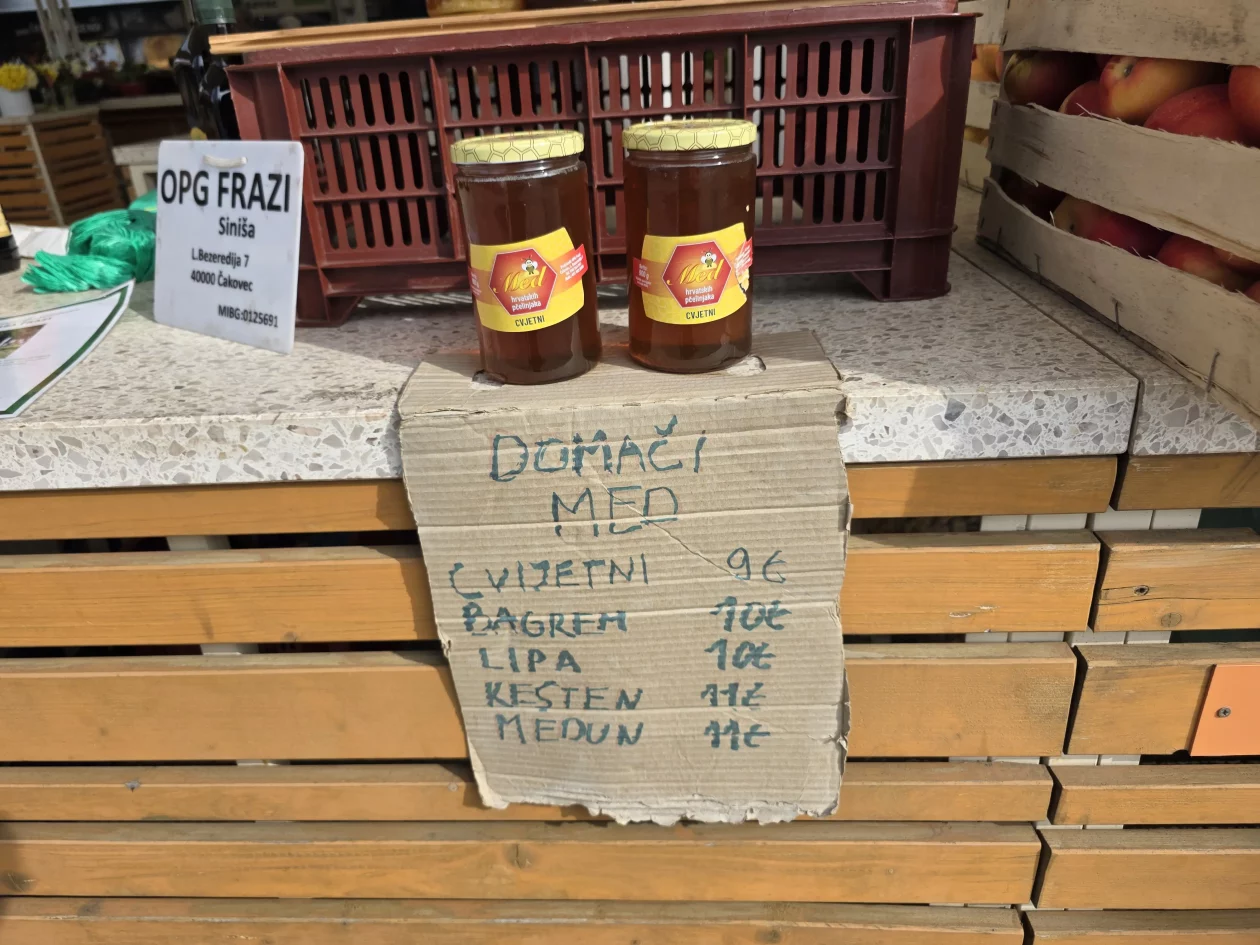 OPG FRAZI
Siniša
L.Bezeredija 7
40000 Čakovec
MIBG:0125691
Med
hrvatskih
pčelinjaka
CVJETNI
Med
hrvatskih
pčelinjaka
CVJETNI
DOMAČI
MED
CVIJETNI 9€
BAGREM 10€
LIPA 10€
KEŠTEN 11€
MEDUN 11€